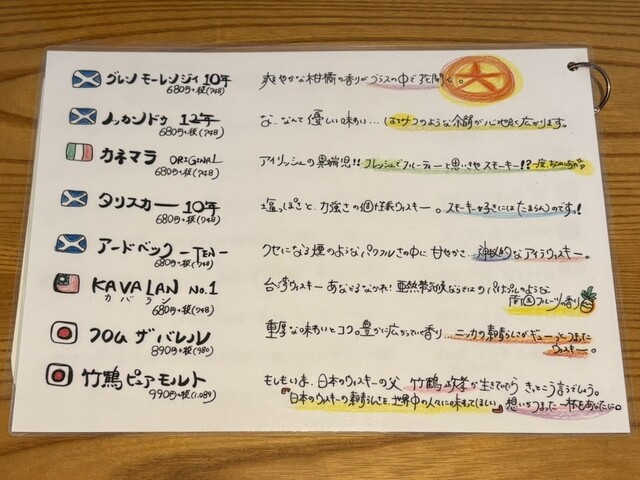 グレンモーレンジィ 10年 爽やかな柑橘の香りがグラスの中で花開く。
680円+税(748)
ノッカンドゥ 12年 な..なんて優しい味わい...はちみつのような余韻が心地良く広がります。
680円+税(748)
カネマラ ORIGINAL アイリッシュの異端児!! フレッシュでフルーティーと思いきやスモーキー!?
680円+税(748)
タリスカー 10年 塩っぽさと、力強さの個性派ウィスキー。スモーキー好きにはたまらんのです!
680円+税(748)
アードベック -TEN- クセになる煙のようなパワフルさの中に甘やかさ。神秘的なアイラウィスキー。
680円+税(748)
KAVALAN NO.1 台湾ウィスキーあなどるなかれ!亜熱帯気候ならではのパイナップルのような
カバラン 南国フルーツの香り
680円+税(748)
フロム ザ バレル 重厚な味わいとコク。豊かに広がっていく香り...ニッカの素晴らしさがギューっとつまった
890円+税(980) ウィスキー。
竹鶴ピュアモルト もしもいま、日本のウィスキーの父、竹鶴政孝が生きてたらきっとこう言うでしょう。
990円+税(1,089) 『日本のウィスキーの素晴らしさを、世界中の人々に味わってほしい。』想いがつまった一杯をあなたに。